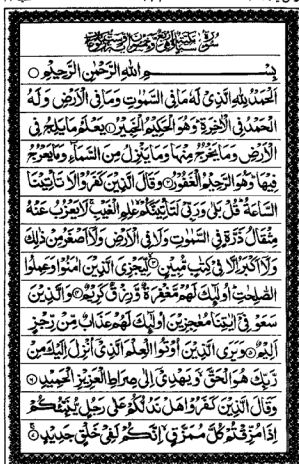 بِسْمِ اللهِ الرَّحْمٰنِ الرَّحِيْمِ
اَلْحَمْدُ لِلّٰهِ الَّذِىْ لَهٗ مَا فِى السَّمٰوٰتِ وَمَا فِى الْاَرْضِ وَلَهُ
الْحَمْدُ فِى الْاٰخِرَةِ وَهُوَ الْحَكِيْمُ الْخَبِيْرُ ۝ يَعْلَمُ مَا يَلِجُ فِى
الْاَرْضِ وَمَا يَخْرُجُ مِنْهَا وَمَا يَنْزِلُ مِنَ السَّمَآءِ وَمَا يَعْرُجُ
فِيْهَا وَهُوَ الرَّحِيْمُ الْغَفُوْرُ ۝ وَقَالَ الَّذِيْنَ كَفَرُوْا لَا تَاْتِيْنَا
السَّاعَةُ قُلْ بَلٰى وَرَبِّىْ لَتَاْتِيَنَّكُمْ عٰلِمِ الْغَيْبِ لَا يَعْزُبُ عَنْهُ
مِثْقَالُ ذَرَّةٍ فِى السَّمٰوٰتِ وَلَا فِى الْاَرْضِ وَلَا اَصْغَرُ مِنْ ذٰلِكَ
وَلَا اَكْبَرُ اِلَّا فِىْ كِتٰبٍ مُّبِيْنٍ ۝ لِّيَجْزِىَ الَّذِيْنَ اٰمَنُوْا وَعَمِلُوا
الصّٰلِحٰتِ اُولٰٓئِكَ لَهُمْ مَّغْفِرَةٌ وَّرِزْقٌ كَرِيْمٌ ۝ وَالَّذِيْنَ
سَعَوْ فِىْ اٰيٰتِنَا مُعٰجِزِيْنَ اُولٰٓئِكَ لَهُمْ عَذَابٌ مِّنْ رِّجْزٍ
اَلِيْمٌ ۝ وَيَرَى الَّذِيْنَ اُوْتُوا الْعِلْمَ الَّذِىْ اُنْزِلَ اِلَيْكَ مِنْ
رَّبِّكَ هُوَ الْحَقَّ وَيَهْدِىْ اِلٰى صِرَاطِ الْعَزِيْزِ الْحَمِيْدِ ۝
وَقَالَ الَّذِيْنَ كَفَرُوْا هَلْ نَدُلُّكُمْ عَلٰى رَجُلٍ يُّنَبِّئُكُمْ
اِذَا مُزِّقْتُمْ كُلَّ مُمَزَّقٍ اِنَّكُمْ لَفِىْ خَلْقٍ جَدِيْدٍ ۝